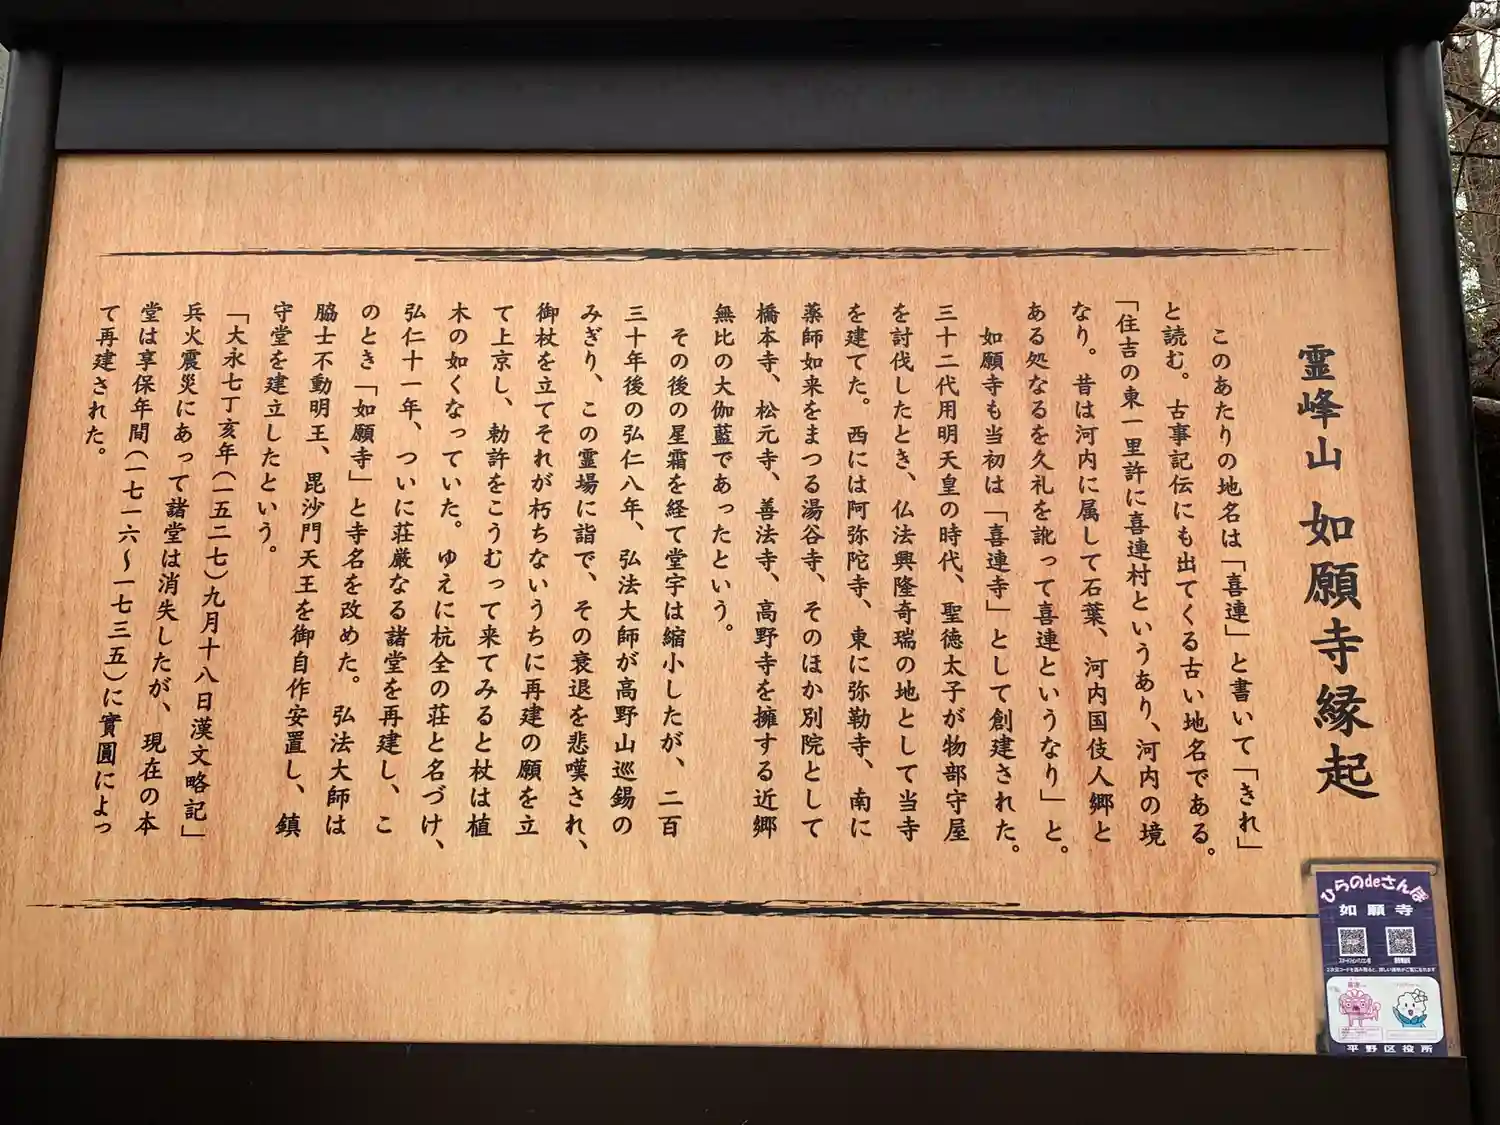 霊峰山 如願寺縁起
このあたりの地名は「喜連」と書いて「きれ」
と読む。古事記伝にも出てくる古い地名である。
「住吉の東一里許に喜連村というあり、河内の境
なり。昔は河内に属して石葉、河内国伎人郷と
ある処なるを久礼を訛って喜連というなり」と。
如願寺も当初は「喜連寺」として創建された。
三十二代用明天皇の時代、聖徳太子が物部守屋
を討伐したとき、仏法興隆奇瑞の地として当寺
を建てた。西には阿弥陀寺、東に弥勒寺、南に
薬師如来をまつる湯谷寺、そのほか別院として
橋本寺、松元寺、善法寺、高野寺を擁する近郷
無比の大伽藍であったという。
その後の星霜を経て堂宇は縮小したが、二百
三十年後の弘仁八年、弘法大師が高野山巡錫の
みぎり、この霊場に詣で、その衰退を悲嘆され、
御杖を立てそれが朽ちないうちに再建の願を立
て上京し、勅許をこうむって来てみると杖は植
木の如くなっていた。ゆえに杭全の荘と名づけ、
弘仁十一年、ついに荘厳なる諸堂を再建し、こ
のとき「如願寺」と寺名を改めた。弘法大師は
脇士不動明王、毘沙門天王を御自作安置し、鎮
守堂を建立したという。
「大永七丁亥年(一五二七)九月十八日漢文略記」
兵火震災にあって諸堂は消失したが、現在の本
堂は享保年間(一七一六〜一七三五)に實圓によっ
て再建された。
ひらのdeさんぽ
如願寺
平野区役所